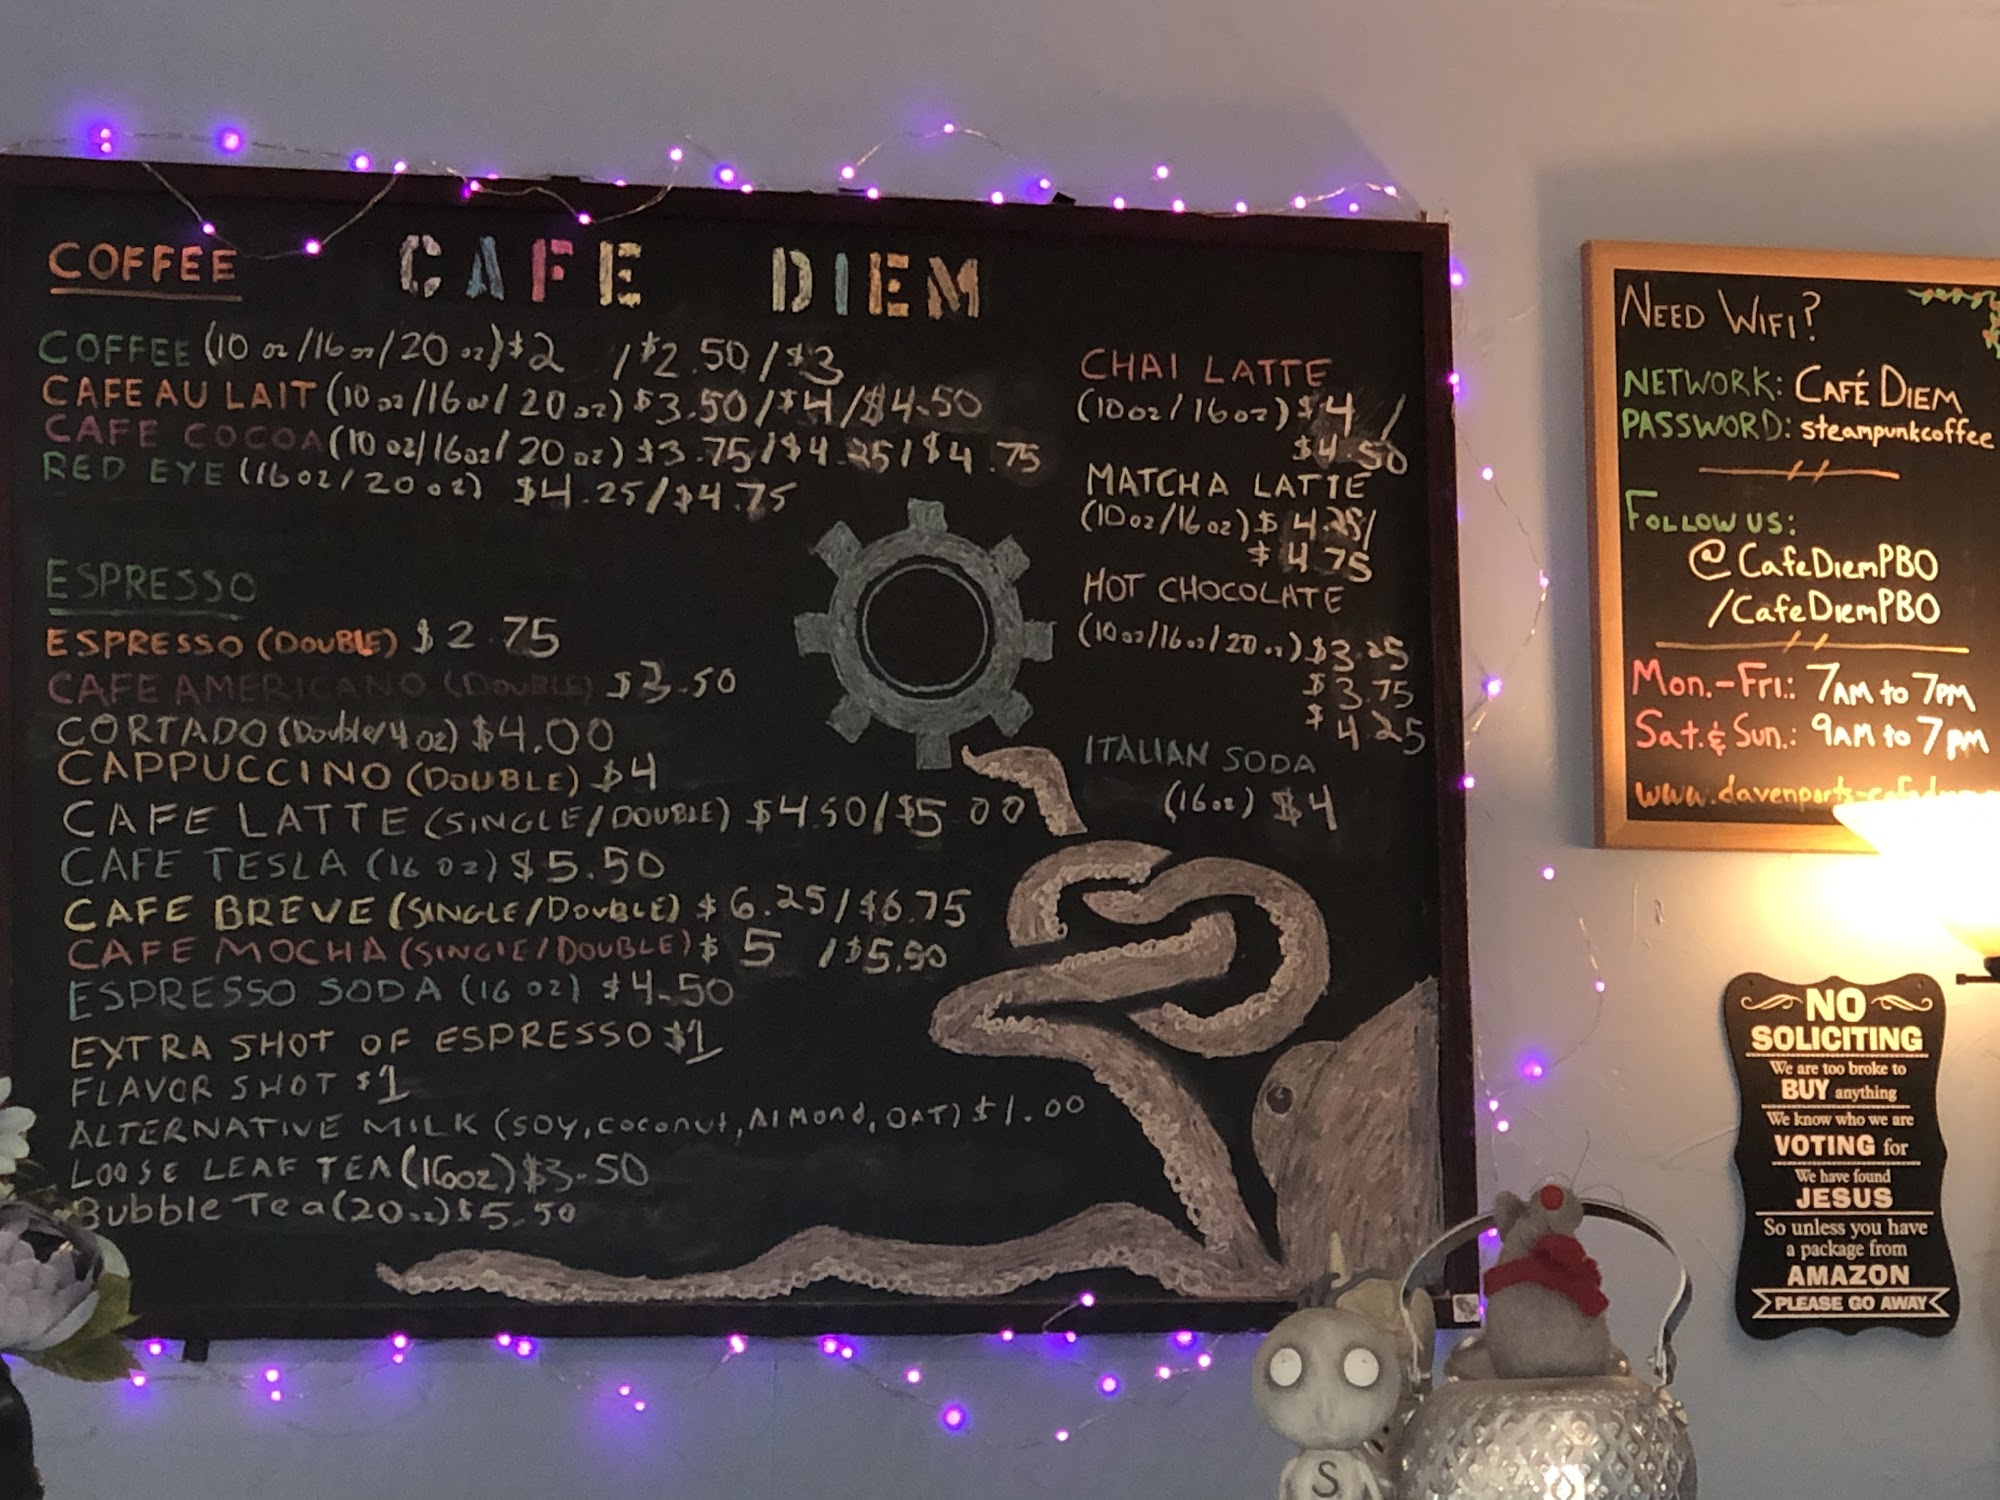 CAFE DIEM
COFFEE
COFFEE (10 oz/16oz/20 oz) $2 /$2.50/$3
CAFE AU LAIT (10 oz/16oz/20 oz) $3.50/$4/$4.50
CAFE COCOA (10 oz/16oz/20 oz) $3.75/$4.25/$4.75
RED EYE (16 oz/20 oz) $4.25/$4.75
ESPRESSO
ESPRESSO (DOUBLE) $2.75
CAFE AMERICANO (DOUBLE) $3.50
CORTADO (Double/4 oz) $4.00
CAPPUCCINO (DOUBLE) $4
CAFE LATTE (SINGLE/DOUBLE) $4.50/$5.00
CAFE TESLA (16 oz) $5.50
CAFE BREVE (SINGLE/DOUBLE) $6.25/$6.75
CAFE MOCHA (SINGLE/DOUBLE) $5 /$5.50
ESPRESSO SODA (16 OZ) $4.50
EXTRA SHOT OF ESPRESSO $1
FLAVOR SHOT $1
ALTERNATIVE MILK (SOY, COCONUT, ALMOND, OAT) $1.00
LOOSE LEAF TEA (16oz) $3.50
Bubble Tea (20oz) $5.50
CHAI LATTE
(10oz/16oz) $4 /
$4.50
MATCHA LATTE
(10oz/16oz) $4.25/
$4.75
HOT CHOCOLATE
(10oz/16oz/20oz) $3.25
$3.75
$4.25
ITALIAN SODA
(16oz) $4
NEED WIFI?
NETWORK: CAFÉ DIEM
PASSWORD: steampunkcoffee
FOLLOW US:
@CafeDiemPBO
/CafeDiemPBO
Mon.-Fri.: 7AM to 7PM
Sat. & Sun.: 9AM to 7PM
www.davenports-cafediem
NO
SOLICITING
We are too broke to
BUY anything
We know who we are
VOTING for
We have found
JESUS
So unless you have
a package from
AMAZON
PLEASE GO AWAY
S